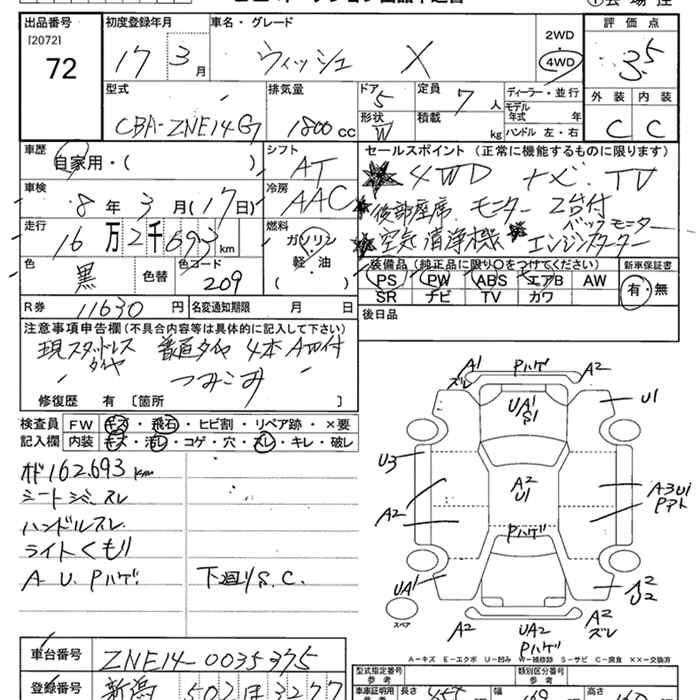 出品番号 初度登録年月 車名・グレード 2WD 4WD 評価点
[2072] 72 17年3月 ウィッシュ X 3.5
型式 排気量 ドア 5 定員 7人 ディーラー・並行 外装 内装
CBA-ZNE14G 1800cc 形状 W 積載 kg モデル年式 年 ハンドル 左・右 C C
車歴 自家用・( ) シフト AT セールスポイント (正常に機能するものに限ります)
車検 8年3月(17日) 冷房 AAC ★4WD ナビ.TV
★後部座席 モニター 2台付
走行 16万2千693km 燃料 ガソリン・軽・油 ( ) バックモニター
★空気清浄機 ★エンジンスターター
色 黒 色替 色コード 209 装備品(純正品に限り○をつけてください) 新車保証書
PS PW ABS エアB AW 有・無
SR ナビ TV カワ
R券 11630円 名変通知期限 月 日 後日品
注意事項申告欄(不具合内容等は具体的に記入して下さい)
現スタッドレスタイヤ 普通タイヤ 4本AW付
つみこみ
修復歴 有 [箇所 ]
検査員 FW キズ・飛石・ヒビ割・リペア跡・×要
記入欄 内装 キズ・汚レ・コゲ・穴・スレ・キレ・破レ
162693km
シートシミ.スレ
ハンドルスレ
ライトくもり
A U. Pハゲ. 下廻りS.C.
A1 Pハゲ A2
ズレ
UA1 S1 U1
U3 A2 U1 A3U1
A2 Pハゲ Pアト
UA1 A2 U2
スペア A2 UA2 Pハゲ A2 ズレ
A-キズ E-エクボ U-凹ミ W-補修跡 S-サビ C-腐食 ××-交換済
車台番号 ZNE14-0035375 型式指定番号 参考 類別区分番号 参考
登録番号 新潟 502 3277 長さ 幅 高さ